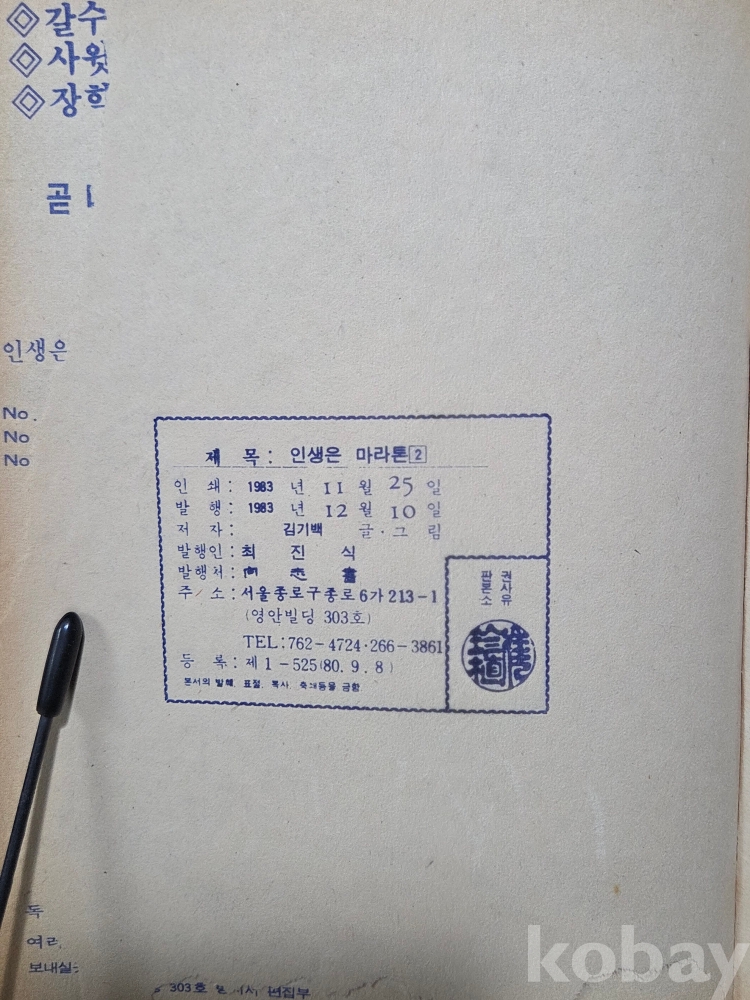 ◇갈수
◇사윗
◇장희
곧
인생은
No.
No
No
제 목: 인생은 마라톤2
인 쇄: 1983 년 11 월 25 일
발 행: 1983 년 12 월 10 일
저 자: 김기백 글·그 림
발행인: 최 진 식
발행처:
주 소: 서울종로구종로6가 213-1
(영안빌딩 303호)
TEL:762-4724·266-3861
등 록: 제1-525(80.9.8)
본서의 발췌, 표절, 복사, 축쇄등물 금함
판권
본사
소유
독
여러
보내실
303호 편집부
kobay